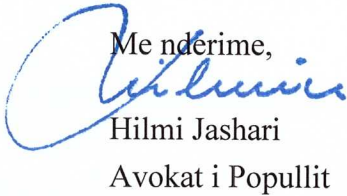 Me nderime,
Hilmi Jashari
Avokat i Popullit